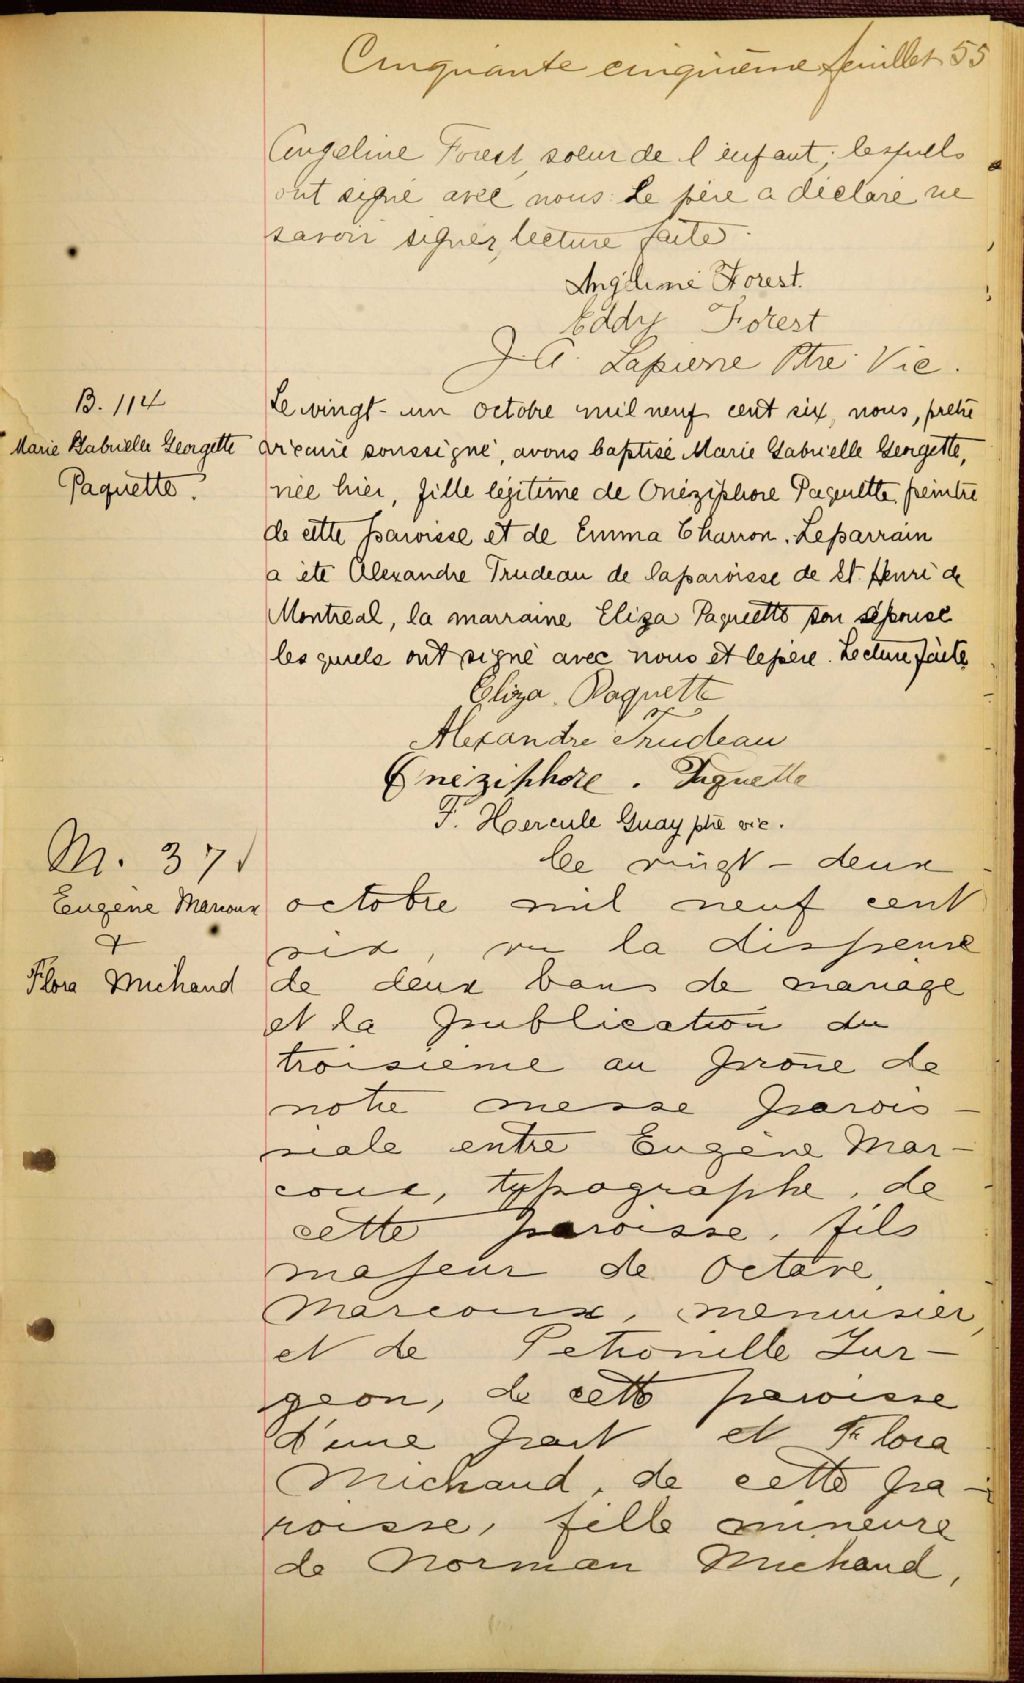 Cinquante cinquième feuillet 55
Angeline Forest, soeur de l'enfant, lesquels
ont signé avec nous. Le père a déclaré ne
savoir signer, lecture faite.
Angéline Forest.
Eddy Forest
J. A. Lapierre Ptre Vic.
B. 114
Marie Gabrielle Georgette
Paquette.
Le vingt-un octobre mil neuf cent six, nous, prêtre
vicaire soussigné, avons baptisé Marie Gabrielle Georgette,
née hier, fille légitime de Onéziphore Paquette, peintre
de cette paroisse et de Emma Charron. Le parrain
a été Alexandre Trudeau de la paroisse de St. Henri de
Montréal, la marraine Eliza Paquette son épouse
lesquels ont signé avec nous et le père. Lecture faite.
Eliza Paquette
Alexandre Trudeau
Onéziphore. Paquette
F. Hercule Guay ptre vic.
M. 37
Eugène Marcoux
&
Flora Michaud
Le vingt-deux
octobre mil neuf cent
six, vu la dispense
de deux bans de mariage
et la publication du
troisième au prône de
notre messe parois-
siale entre Eugène Mar-
coux, typographe, de
cette paroisse, fils
majeur de Octave
Marcoux, menuisier,
et de Petronille Tur-
geon, de cette paroisse
d'une part et Flora
Michaud, de cette pa-
roisse, fille mineure
de Norman Michaud,